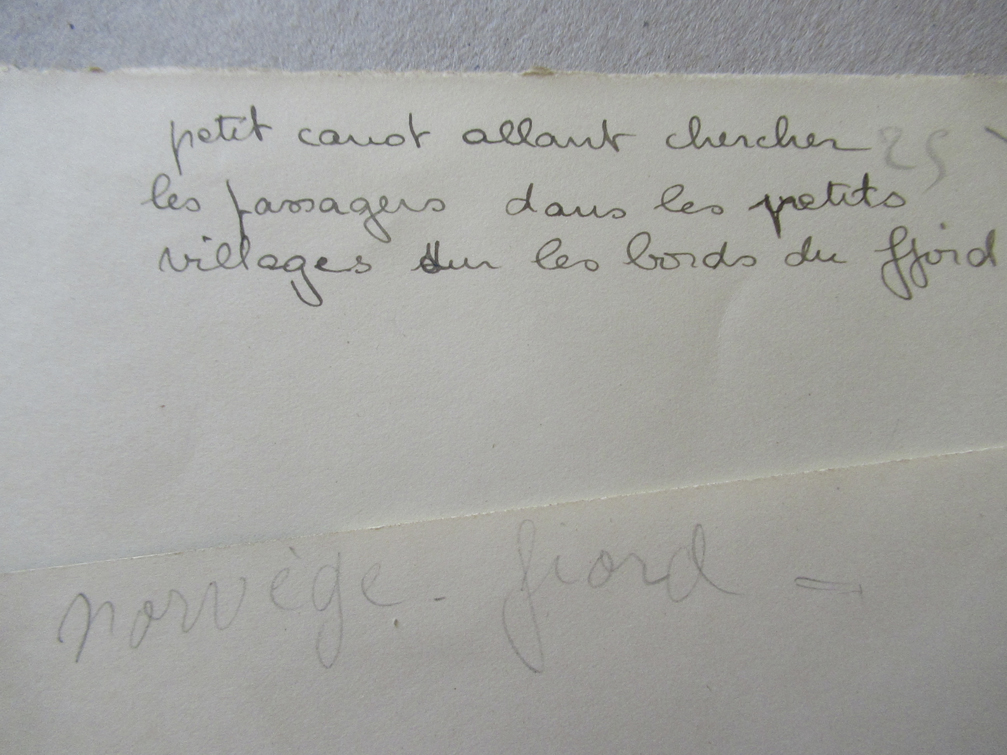 petit canot allant chercher 25
les passagers dans les petits
villages sur les bords du fjord
norvège - fiord -